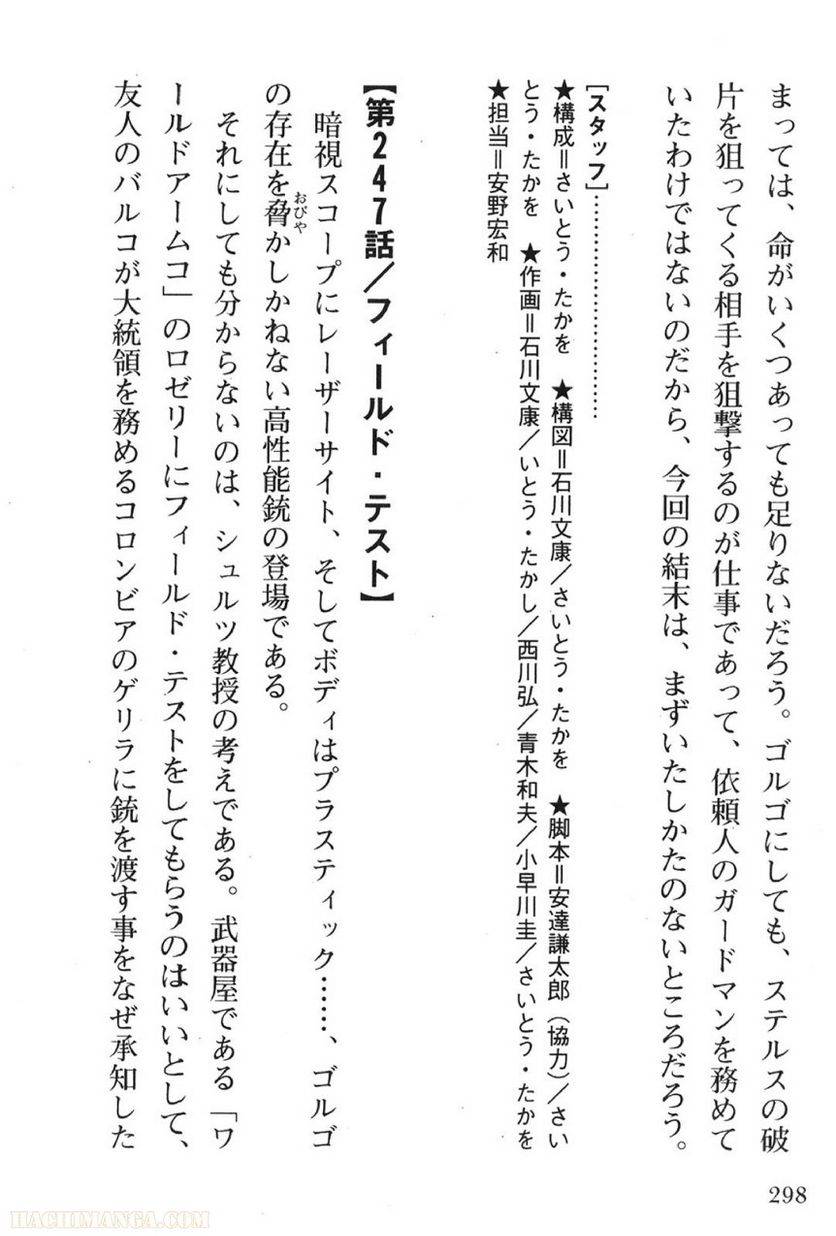 まっては、命がいくつあっても足りないだろう。ゴルゴにしても、ステルスの破
片を狙ってくる相手を狙撃するのが仕事であって、依頼人のガードマンを務めて
いたわけではないのだから、今回の結末は、まずいたしかたのないところだろう。
[スタッフ]……………………………
★構成＝さいとう・たかを　★構図＝石川文康／さいとう・たかを　★脚本＝安達謙太郎（協力）／さい
とう・たかを　★作画＝石川文康／いとう・たかし／西川弘／青木和夫／小早川圭／さいとう・たかを
★担当＝安野宏和
【第247話／フィールド・テスト】
暗視スコープにレーザーサイト、そしてボディはプラスティック……、ゴルゴ
の存在を脅かしかねない高性能銃の登場である。
おびや
それにしても分からないのは、シュルツ教授の考えである。武器屋である「ワ
ールドアームコ」のロゼリーにフィールド・テストをしてもらうのはいいとして、
友人のバルコが大統領を務めるコロンビアのゲリラに銃を渡す事をなぜ承知した
298
HACHIMANGA.COM